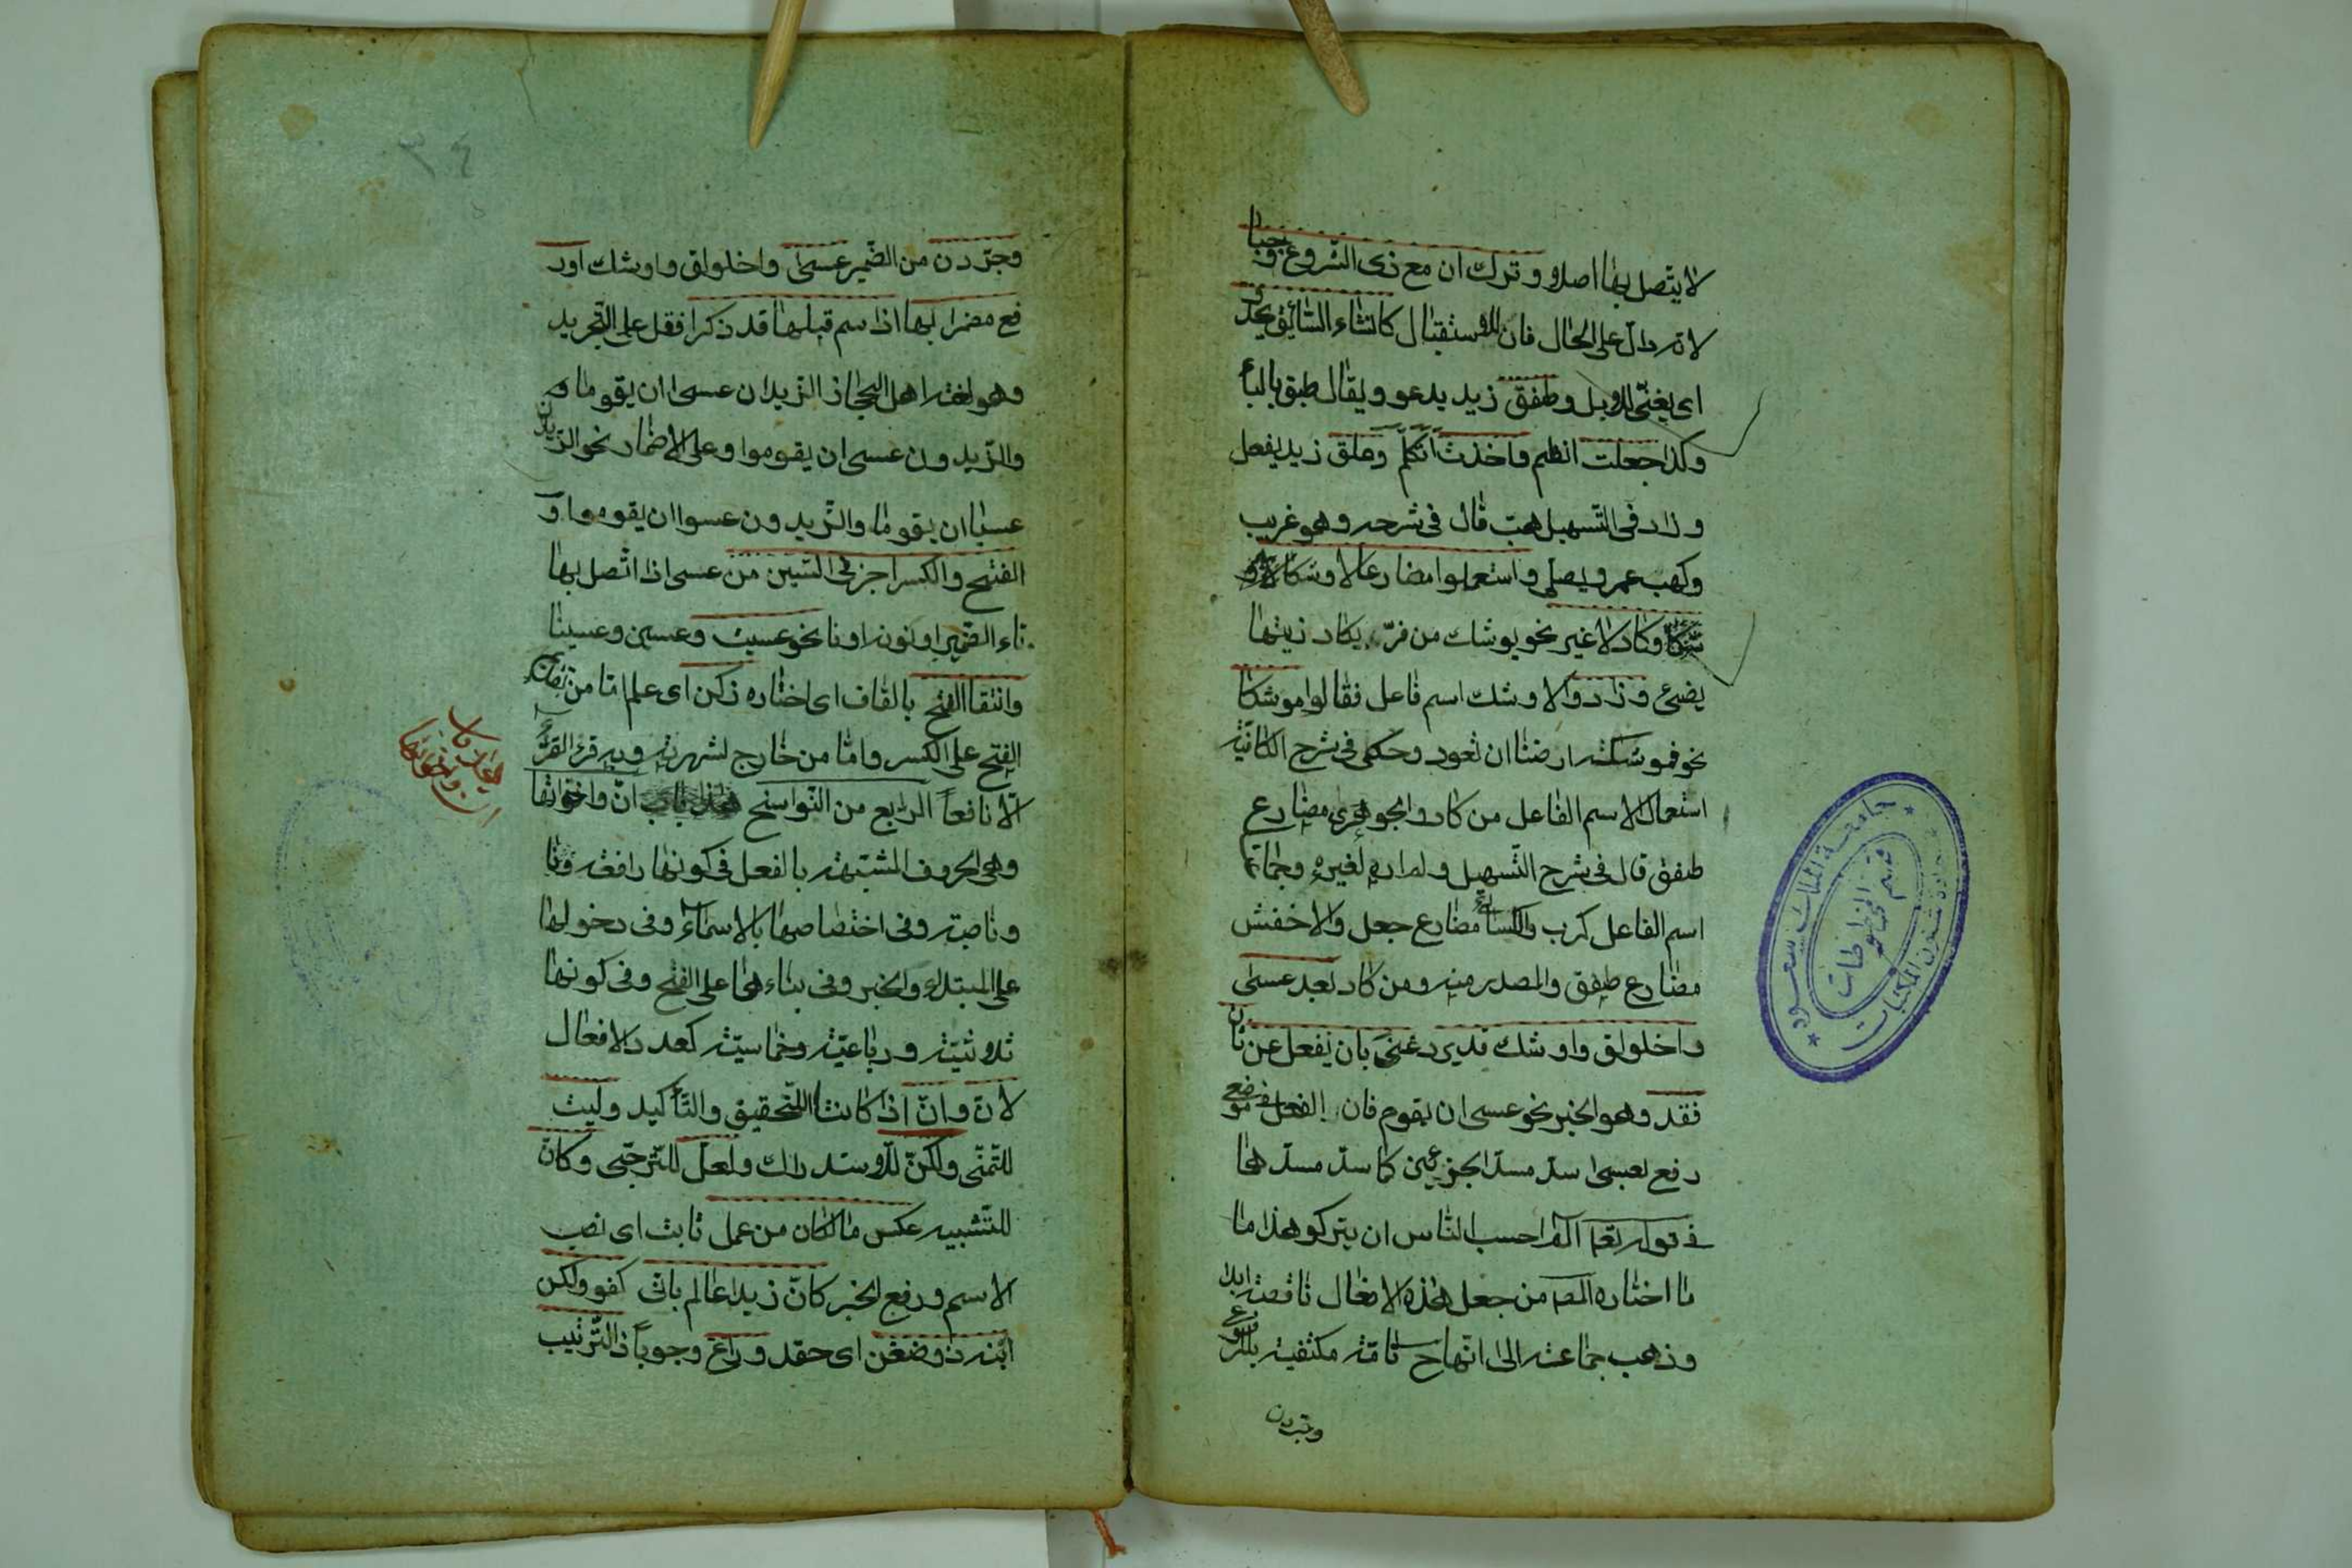 لا يتّصل بها اصلا و وترك ان مع ذى الشروع وجبا
لانه دالّ على الحال فان للاستقبال كانشاء السّائق يحدو
اى يغنّى للابل وطفق زيد يدعو ويقال طبق بالباء
وكذا جعلت انظم واخذت اتكلّم وعلق زيد يفعل
وزاد فى التّسهيل هبّ قال فى شرحه وهو غريب
وكهب عمرو يصلى واستعملوا مضارعا لاوشكا
وكاد لا غير نحو يوشك من فرّ يكاد زيتها
يضىء وزادوا لاوشك اسم فاعل فقالوا موشكا
نحو فموشكة ارضنا ان تعود وحكى فى شرح الكافية
استعمال اسم الفاعل من كاد والجوهرى مضارع
طفق قال فى شرح التّسهيل ولم اره لغيره وجماعة
اسم الفاعل كرب والكسائى مضارع جعل والاخفش
مضارع طفق والمصدر منه ومن كاد بعد عسى
واخلولق واوشك قد يرد غنى بان يفعل عن ثان
فقد وهو الخبر نحو عسى ان يقوم فان الفعل فى موضع
رفع بعسى سدّ مسدّ الجزءين كما سدّ مسدّهما
فى قوله تعا الم احسب الناس ان يتركو هذا ما
ما اختاره المص من جعل هذه الافعال ناقصة ابدا
وذهب جماعة الى انّها ح تامّة مكتفية بالمرفوع
وجردن
٣٤
وجرّدن من الضّمير عسى واخلولق واوشك او ر
فع مضمرا بها اذا اسم قبلها قد ذكرا فقل على التّجريد
وهو لغة اهل الحجاز الزّيدان عسى ان يقوما
والزّيدون عسى ان يقوموا وعلى الاضمار نحو الزّيدان
عسيا ان يقوما والزّيدون عسوا ان يقوموا و
الفتح والكسر اجز فى السّين من عسى اذا اتّصل بها
تاء الضّمير او نونه او نا نحو عسيت وعسين وعسينا
وانتقا الفتح بالقاف اى اختاره زكن اى علم امّا من تقديم
الفتح على الكسر وامّا من خارج لشهرته وبه قرء القرّاء
الّا نافعاً الرابع من النّواسخ انّ واخواتها
وهى الحروف المشبّهة بالفعل فى كونها رافعة
وناصبة وفى اختصاصها بالاسماء وفى دخولها
على المبتداء والخبر وفى بناءها على الفتح وفى كونها
ثلاثيّة ورباعيّة وخماسيّة كعدد الافعال
لانّ وانّ اذا كانتا للتّحقيق والتّأكيد وليت
للتّمنّى ولكنّ للاستدراك ولعلّ للتّرجّى وكانّ
للتّشبيه عكس ما لكان من عمل ثابت اى نصب
الاسم ورفع الخبر كانّ زيدا عالم بانّى كفو ولكن
ابنه ذو ضغن اى حقد وراع وجوباً ذا التّرتيب
ان واخواتها
جامعة الملك سعود
عمادة شئون المكتبات
قسم المخطوطات